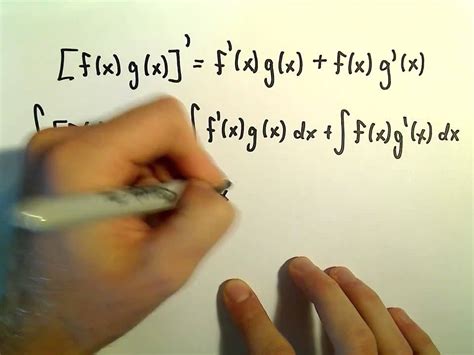 [f(x) g(x)]' = f'(x) g(x) + f(x) g'(x)
∫ ∫ f'(x) g(x) dx + ∫ f(x) g'(x) dx